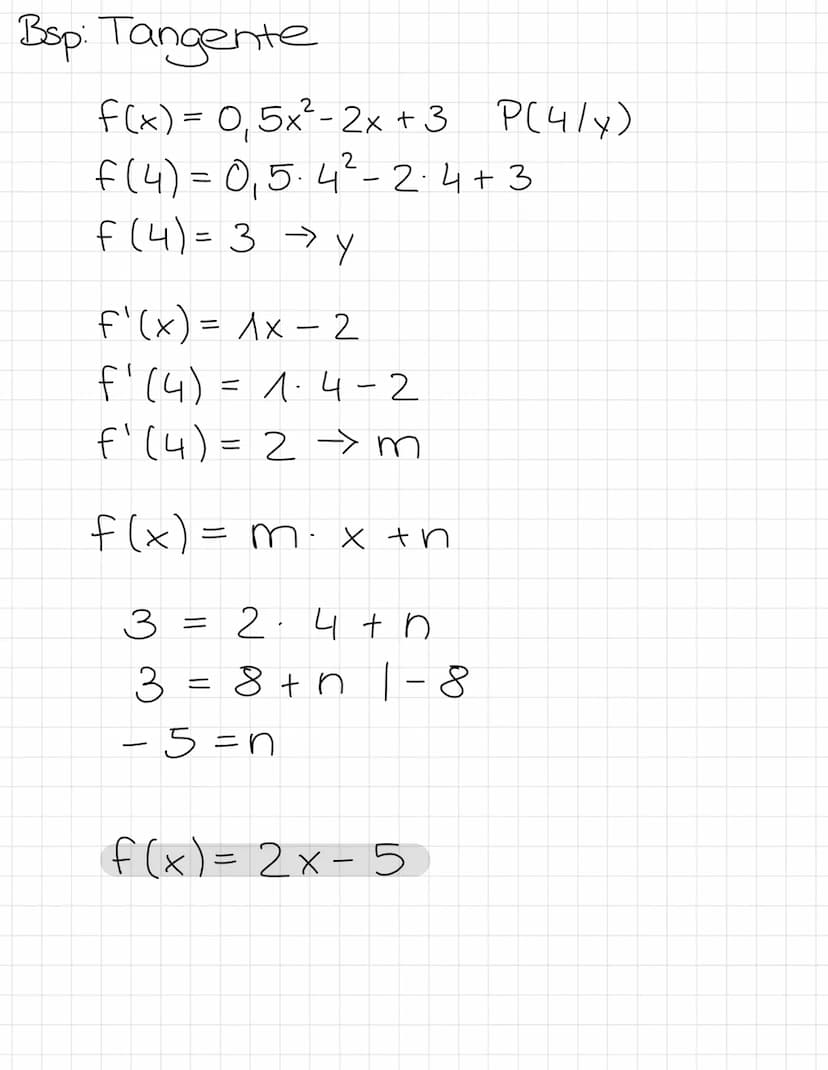 Bsp: Tangente
f(x) = 0,5x² - 2x + 3 P(4/y)
f(4) = 0,5 · 4² - 2 · 4 + 3
f(4) = 3 → y
f'(x) = 1x - 2
f'(4) = 1 · 4 - 2
f'(4) = 2 → m
f(x) = m · x + n
3 = 2 · 4 + n
3 = 8 + n | - 8
- 5 = n
f(x) = 2x - 5